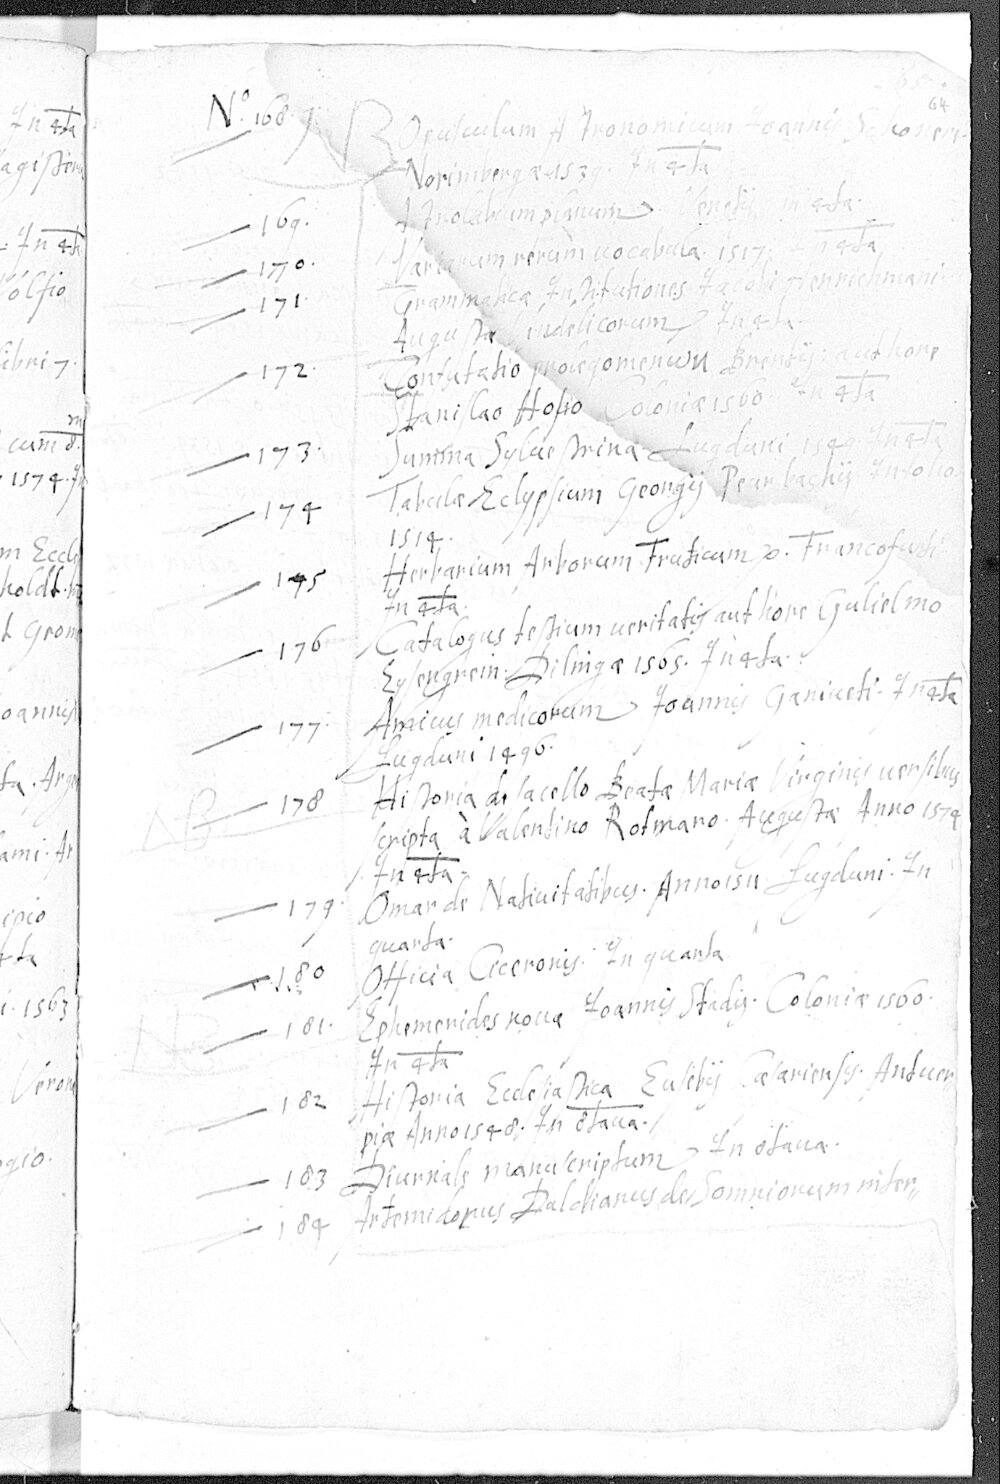 64
N.º 168. NB Opusculum Astronomicum Joannis Schoneri.
Norimbergæ 1539. In 4ta
169. Astrolabium planum. Venetijs in 4ta.
170. Variarum rerum uocabula. 1517. In 4ta
171. Grammaticæ Institutiones Jacobi Henrichmani
Augustæ Vindelicorum In 4ta.
172. Confutatio prolegomenωn Brentij: authore
Stanislao Hosio Coloniæ 1560 In 4ta
173. Summa Syluestrina. Lugduni 1549 In 4ta
174 Tabulæ Eclypsium Georgij Peurbachij In folio
1514.
175 Herbarium Arborum Fruticum &. Francofurti
In 4ta.
176 Catalogus testium ueritatis authore Gulielmo
Eysengrein. Dilingæ 1565. In 4ta.
177. Amicus medicorum Joannis Ganiueti. In 4ta
Lugduni 1496.
178 Historia de sacello Beatæ Mariæ Virginis uersibus
scripta à Valentino Rotmaro. Augustæ Anno 1574
In 4ta.
179. Omar de Natiuitatibus. Anno 1511 Lugduni. In
quarta.
180 Officia Ciceronis. In quarta
181. Ephemerides nouæ Joannis Stadij. Coloniæ 1560.
In 4ta
182 Historia Ecclesiastica Eusebij Cæsariensis. Antuer
piæ Anno 1548. In 8taua.
183 Diurnale manuscriptum In 8taua.
184 Artemidorus Daldianus de Somniorum inter„